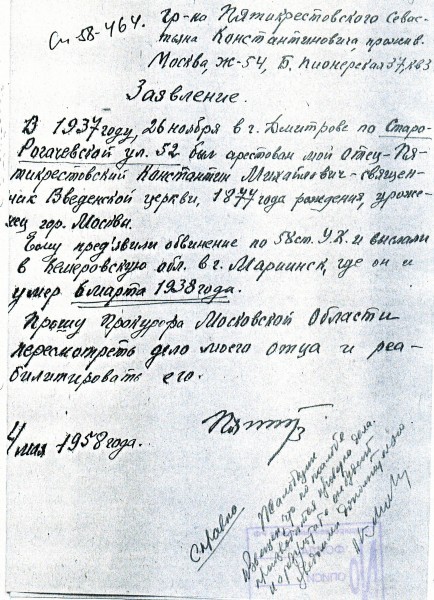 Сл-58-464.
гр-на Пятикрестовского Севас-
тьяна Константиновича, прожив.
Москва, Ж-54, Б. Пионерская 37, кв3
Заявление.
В 1937 году, 26 ноября в г. Дмитрове по Старо
Рогачевской ул. 52 был арестован мой отец - Пя-
тикрестовский Константин Михайлович - священ-
ник Введежской церкви, 1877 года рождения, уроже-
нец гор. Москвы.
Ему предъявили обвинение по 58 ст. У.К. и выслали
в Кемеровскую обл. в г. Мариинск, где он и
умер 6 марта 1938 года.
Прошу Прокурора Московской Области
пересмотреть дело моего отца и реа-
билитировать его.
4 мая 1958 года.
Справка